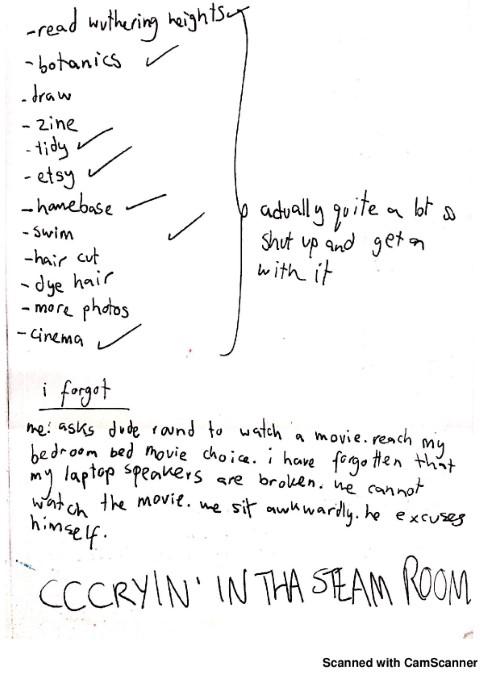 -read wuthering heights ✓
-botanics ✓
-draw
-zine
-tidy ✓
-etsy ✓
-homebase ✓
-swim ✓
-hair cut
-dye hair
-more photos
-cinema ✓
actually quite a lot so
shut up and get on
with it
i forgot
me: asks dude round to watch a movie. reach my
bedroom bed movie choice. i have forgotten that
my laptop speakers are broken. we cannot
watch the movie. we sit awkwardly. he excuses
himself.
CCCRYIN' IN THA STEAM ROOM
Scanned with CamScanner